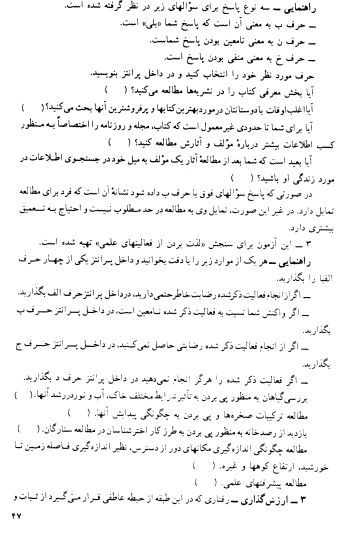 راهنمایی ــ سه نوع پاسخ برای سؤالهای زیر در نظر گرفته شده است.
ــ حرف ب به معنی آن است که پاسخ شما «بلی» است.
ــ حرف ن به معنی نامعین بودن پاسخ شماست.
ــ حرف خ به معنی منفی بودن پاسخ است.
حرف مورد نظر خود را انتخاب کنید و در داخل پرانتز بنویسید.
آیا بخش معرفی کتاب را در نشریه‌ها مطالعه می‌کنید؟ ( )
آیا اغلب اوقات با دوستانتان در مورد بهترین کتابها و پرفروشترین آنها بحث می‌کنید؟ ( )
آیا برای شما تا حدودی غیر معمول است که کتاب، مجله و روزنامه را اختصاصاً به منظور
کسب اطلاعات بیشتر دربارهٔ مؤلف و آثارش مطالعه کنید؟ ( )
آیا بعید است که شما بعد از مطالعهٔ آثار یک مؤلف به میل خود در جستجوی اطلاعات در
مورد زندگی او باشید؟ ( )
در صورتی که پاسخ سؤالهای فوق با حرف ب داده شود نشانهٔ آن است که فرد برای مطالعه
تمایل دارد. در غیر این صورت، تمایل وی به مطالعه در حد مطلوب نیست و احتیاج به تعمیق
بیشتری دارد.
۳ ــ این آزمون برای سنجش «لذت بردن از فعالیتهای علمی» تهیه شده است.
راهنمایی ــ هر یک از موارد زیر را با دقت بخوانید و داخل پرانتز یکی از چهار حرف
الفبا را بگذارید.
ــ اگر از انجام فعالیت ذکر شده رضایت خاطر حتمی دارید، در داخل پرانتز حرف الف بگذارید.
ــ اگر واکنش شما نسبت به فعالیت ذکر شده نامعین است، در داخل پرانتز حرف ب
بگذارید.
ــ اگر از انجام فعالیت ذکر شده رضایتی حاصل نمی‌کنید، در داخل پرانتز حرف ج
بگذارید.
ــ اگر فعالیت ذکر شده را هرگز انجام نمی‌دهید در داخل پرانتز حرف د بگذارید.
بررسی گیاهان به منظور پی بردن به تأثیر شرایط مختلف خاک، آب و نور در رشد آنها. ( )
مطالعه ترکیبات صخره‌ها و پی بردن به چگونگی پیدایش آنها. ( )
بازدید از رصدخانه به منظور پی بردن به طرز کار اخترشناسان در مطالعه ستارگان. ( )
مطالعه چگونگی اندازه‌گیری مکانهای دور از دسترس، نظیر اندازه‌گیری فاصله زمین تا
خورشید، ارتفاع کوهها و غیره. ( )
مطالعه پیشرفتهای علمی. ( )
۳ ــ ارزش‌گذاری ــ رفتاری که در این طبقه از حیطه عاطفی قرار می‌گیرد از ثبات و
۴۷